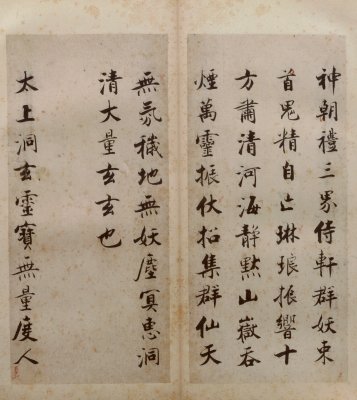 神朝禮三界侍軒群妖束
首鬼精自亡琳琅振響十
方肅清河海静默山嶽吞
煙萬靈振伏招集群仙天
無氛穢地無妖塵冥惠洞
清大量玄玄也
太上洞玄靈寶無量度人